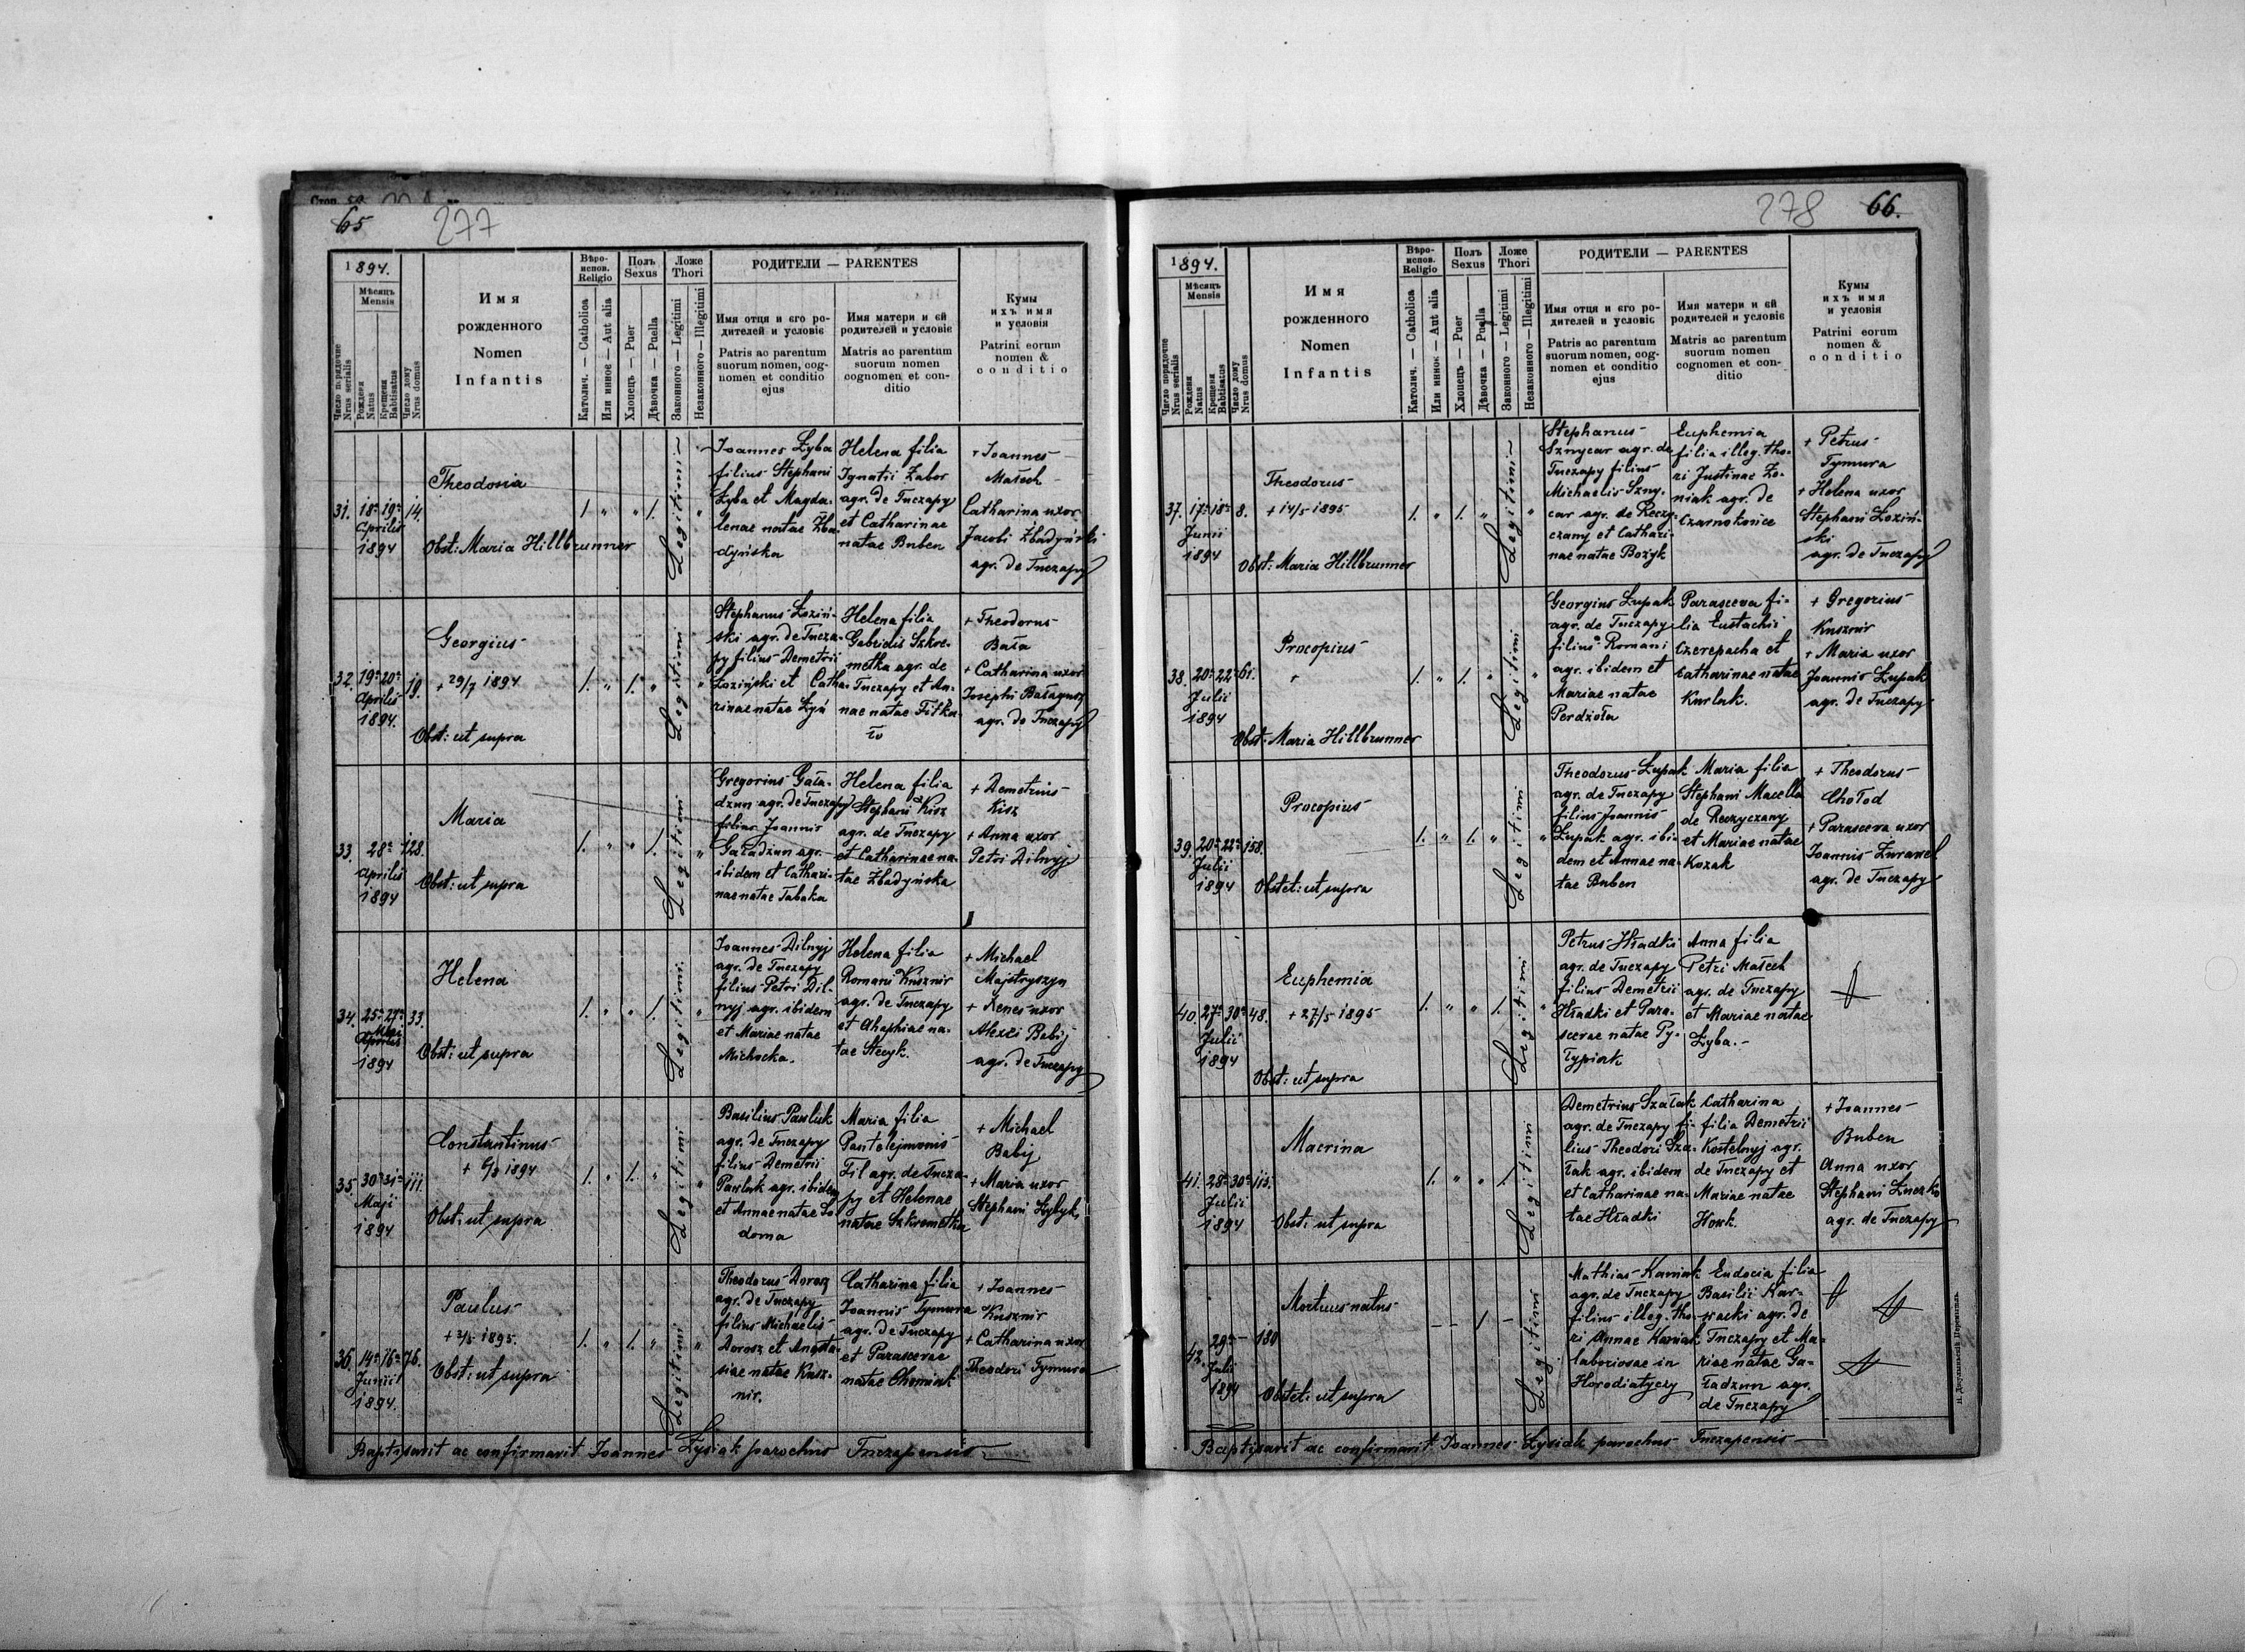 65
277
1894.
Число порядочне
Nrus serialis
Мѣсяцъ
Mensis
Рождени
Natus
Крещени
Babtisatus
Число дому
Nrus domus
Имя
рожденного
Nomen
Infantis
Вѣро-
испов.
Religio
Католич. — Catholica
Или инноє — Aut alia
Полъ
Sexus
Хлопець — Puer
Дѣвочка — Puella
Ложе
Thori
Законного — Legitimi
Незаконного — Illegitimi
РОДИТЕЛИ — PARENTES
Имя отця и єго ро-
дителей и условіє
Patris ac parentum
suorum nomen, cog-
nomen et conditio
ejus
Имя матери и єй
родителей и условіє
Matris ac parentum
suorum nomen
cognomen et con-
ditio
Кумы
ихъ имя
и условія
Patrini eorum
nomen &
conditio
31. 18a 19a 14.
Aprilis
1894
Theodosia
Obst: Maria Hillbrunner
1. " " 1. Legitimi "
Joannes Łyba
filius Stephani
Łyba et Magda-
lenae natae Zba-
dyńska
Helena filia
Ignatii Zabor
agr. de Tuczapy
et Catharinae
natae Buben
+ Joannes
Małech
Catharina uxor
Jacobi Zbadyński
agr. de Tuczapy
32. 19a 20a 19.
Aprilis
1894.
Georgius
+ 29/7 1894
Obst: ut supra
1. " 1. " Legitimi "
Stephanus Łoziń-
ski agr. de Tucza-
py filius Demetrii
Łoziński et Catha-
rinae natae
Helena filia
Gabrielis Szkre-
metka agr. de
Tuczapy et An-
nae natae
+ Theodorus
Bała
+ Catharina uxor
Josephi
agr. de Tuczapy
33. 28a 128.
Aprilis
1894
Maria
Obst: ut supra
1. " " 1. Legitimi "
Gregorius Gała-
dzun agr. de Tuczapy
filius Joannis
Gaładzun agr.
ibidem et Cathari-
nae natae Tabaka
Helena filia
Stephani Kisz
agr. de Tuczapy
et Catharinae na-
tae Zbadyńska
+ Demetrius
Kisz
+ Anna uxor
Petri Dilnyj
34. 25a 27a 33.
Maji
1894
Helena
Obst: ut supra
1. " " 1. Legitimi "
Joannes Dilnyj
agr. de Tuczapy
filius Petri Dil-
nyj agr. ibidem
et Mariae natae
Michocka.
Helena filia
Romani Kusznir
agr. de Tuczapy
et Ahaphiae na-
tae Stecyk.
+ Michael
Majstryszyn
+ Xenes uxor
Alexii Babij
agr. de Tuczapy
35. 30a 31a 111.
Maji
1894
Constantinus
+ 6/8 1894
Obst: ut supra
1. " 1. " Legitimi "
Basilius Pawluk
agr. de Tuczapy
filius Demetrii
Pawluk agr. ibidem
et Annae natae So-
doma
Maria filia
Pantelejmonis
Fil agr. de Tucza-
py et Helenae
natae Szkremetka
+ Michael
Babij
+ Maria uxor
Stephani
36. 14a 16a 76.
Junii
1894.
Paulus
+ 2/5 1895.
Obst: ut supra
1. " 1. " Legitimi "
Theodorus Dorosz
agr. de Tuczapy
filius Michaelis
Dorosz et Anasta-
siae natae Kusz-
nir.
Catharina filia
Joannis Tymura
agr. de Tuczapy
et Parascevae
natae Chomiak
+ Joannes
Kusznir
+ Catharina uxor
Theodori Tymura
Baptisavit ac confirmavit Joannes Łysiak parochus Tuczapensis
278
66.
1894.
Число порядочне
Nrus serialis
Мѣсяцъ
Mensis
Рождени
Natus
Крещени
Babtisatus
Число дому
Nrus domus
Имя
рожденного
Nomen
Infantis
Вѣро-
испов.
Religio
Католич. — Catholica
Или инноє — Aut alia
Полъ
Sexus
Хлопець — Puer
Дѣвочка — Puella
Ложе
Thori
Законного — Legitimi
Незаконного — Illegitimi
РОДИТЕЛИ — PARENTES
Имя отця и єго ро-
дителей и условіє
Patris ac parentum
suorum nomen, cog-
nomen et conditio
ejus
Имя матери и єй
родителей и условіє
Matris ac parentum
suorum nomen
cognomen et con-
ditio
Кумы
ихъ имя
и условія
Patrini eorum
nomen &
conditio
37. 17a 18a 8.
Junii
1894
Theodorus
+ 14/5 1895
Obst: Maria Hillbrunner
1. " 1. " Legitimi "
Stephanus
Sznycar agr. de
Tuczapy filius
Michaelis Szny-
car agr. de Reczy-
czany et Cathari-
nae natae Bożyk
Euphemia
filia illeg. tho-
ri Justinae Zo-
niak agr. de
Czarnokońce
+ Petrus
Tymura
+ Helena uxor
Stephani Łoziń-
ski
agr. de Tuczapy
38. 20a 22a 61.
Julii
1894
Procopius
Obst: Maria Hillbrunner
1. " 1. " Legitimi "
Georgius Łupak
agr. de Tuczapy
filius Romani
agr. ibidem et
Mariae natae
Perdzioła
Parasceva fi-
lia Eustachii
Czerepacha et
Catharinae natae
Kurlak.
+ Gregorius
Kusznir
+ Maria uxor
Joannis Łupak
agr. de Tuczapy
39. 20a 22a 158.
Julii
1894
Procopius
Obstet: ut supra
1. " 1. " Legitimi "
Theodorus Łupak
agr. de Tuczapy
filius Joannis
Łupak agr. ibi-
dem et Annae na-
tae Buben
Maria filia
Stephani Macella
de Reczyczany
et Mariae natae
Kozak
+ Theodorus
Chołod
+ Parasceva uxor
Joannis Zurawel
agr. de Tuczapy
40. 27a 30a 48.
Julii
1894
Euphemia
+ 27/5 1895
Obst: ut supra
1. " " 1. Legitimi "
Petrus Hładki
agr. de Tuczapy
filius Demetrii
Hładki et Para-
scevae natae Py-
łypiak
Anna filia
Petri Małech
agr. de Tuczapy
et Mariae natae
Łyba.-
41. 28a 30a 115.
Julii
1894
Macrina
Obst: ut supra
1. " " 1. Legitimi
Demetrius Szałak
agr. de Tuczapy fi-
lius Theodori Sza-
łak agr. ibidem
et Catharinae na-
tae Hładki
Catharina
filia Demetrii
Kostelnyj agr.
de Tuczapy et
Mariae natae
Houk.
+ Joannes
Buben
Anna uxor
Stephani Łuczko
agr. de Tuczapy
42. 29a — 180
Julii
1894
Mortuus natus
Obstet: ut supra
- - 1 - Legitimi
Mathias Kaniak
agr. de Tuczapy
filius illeg. tho-
ri Annae Kaniak
laboriosae in
Horodiatyczy
Eudocia filia
Basilii Kar-
wacki agr. de
Tuczapy et Ma-
riae natae Ga-
ładzun agr.
de Tuczapy
Baptisavit ac confirmavit Joannes Łysiak parochus Tuczapensis